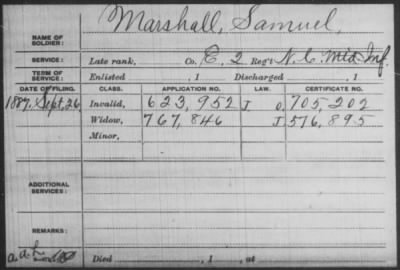 Marshall, Samuel,
NAME OF SOLDIER:
SERVICE: Late rank, Co. E. 2 Reg't N. C. Mtd. Inf.
TERM OF SERVICE: Enlisted , 1 Discharged , 1
DATE OF FILING. CLASS. APPLICATION NO. LAW. CERTIFICATE NO.
1887. Sept. 26 Invalid, 623,952 J O, 705,202
Widow, 767,846 J 516,895
Minor,
ADDITIONAL SERVICES:
REMARKS:
Died , 1 , at